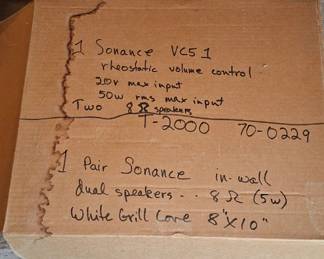 1 Sonance VC51
rheostatic volume control
20v max input
50w rms max input
Two 8Ω speakers
T-2000 70-0229
1 Pair Sonance in-wall
dual speakers.. 8Ω (5w)
White Grill Core 8"X10"